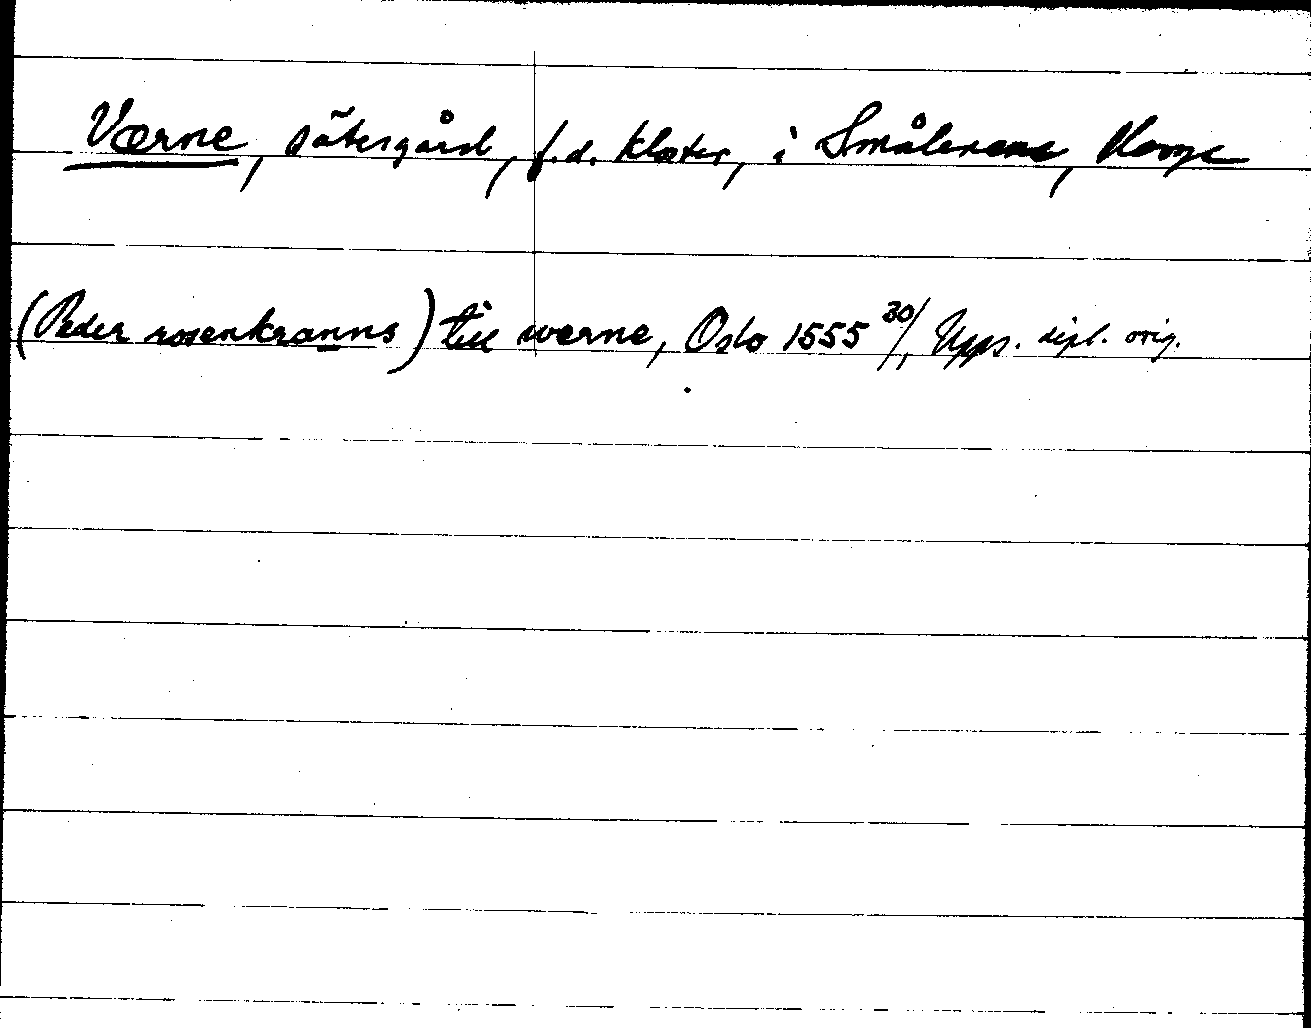 Værne, sätesgård, f.d. kloster, i Smålenene, Norge
(Peder rosenkranns) till werne, Oslo 1555 30/1, Upps. dipl. orig.